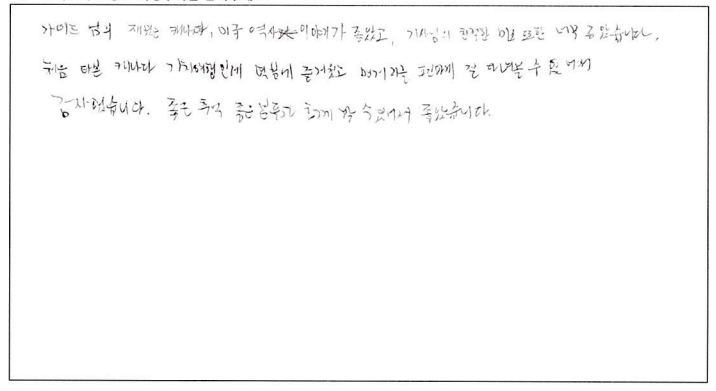 가이드 님의 재밌는 캐나다, 미국 역사 이야기가 좋았고, 기사님의 한적한 또한 너무 좋았습니다.
처음 타본 캐나다 기차여행인데 덕분에 즐거웠고 여기저기 편하게 잘 다녀볼 수 있어서
감사했습니다. 좋은 추억 좋은 분들과 함께 할 수 있어서 좋았습니다.